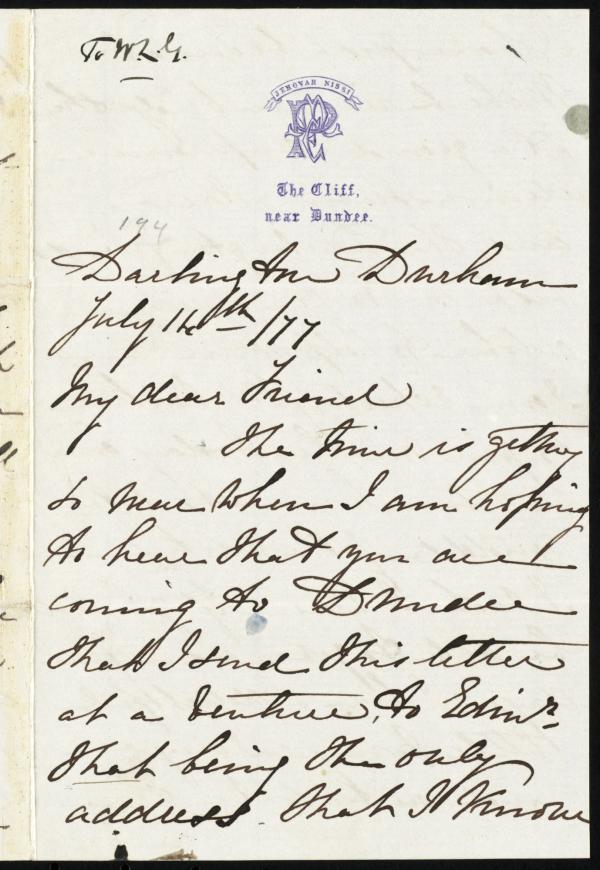 To W.L.G.
JEHOVAH NISSI
The Cliff,
near Dundee.
194
Darlington Durham
July 14th/77
My dear Friend
The time is getting
so near when I am hoping
to hear that you are
coming to Dundee
that I send this letter
at a venture, to Edinr.
that being the only
address that I know